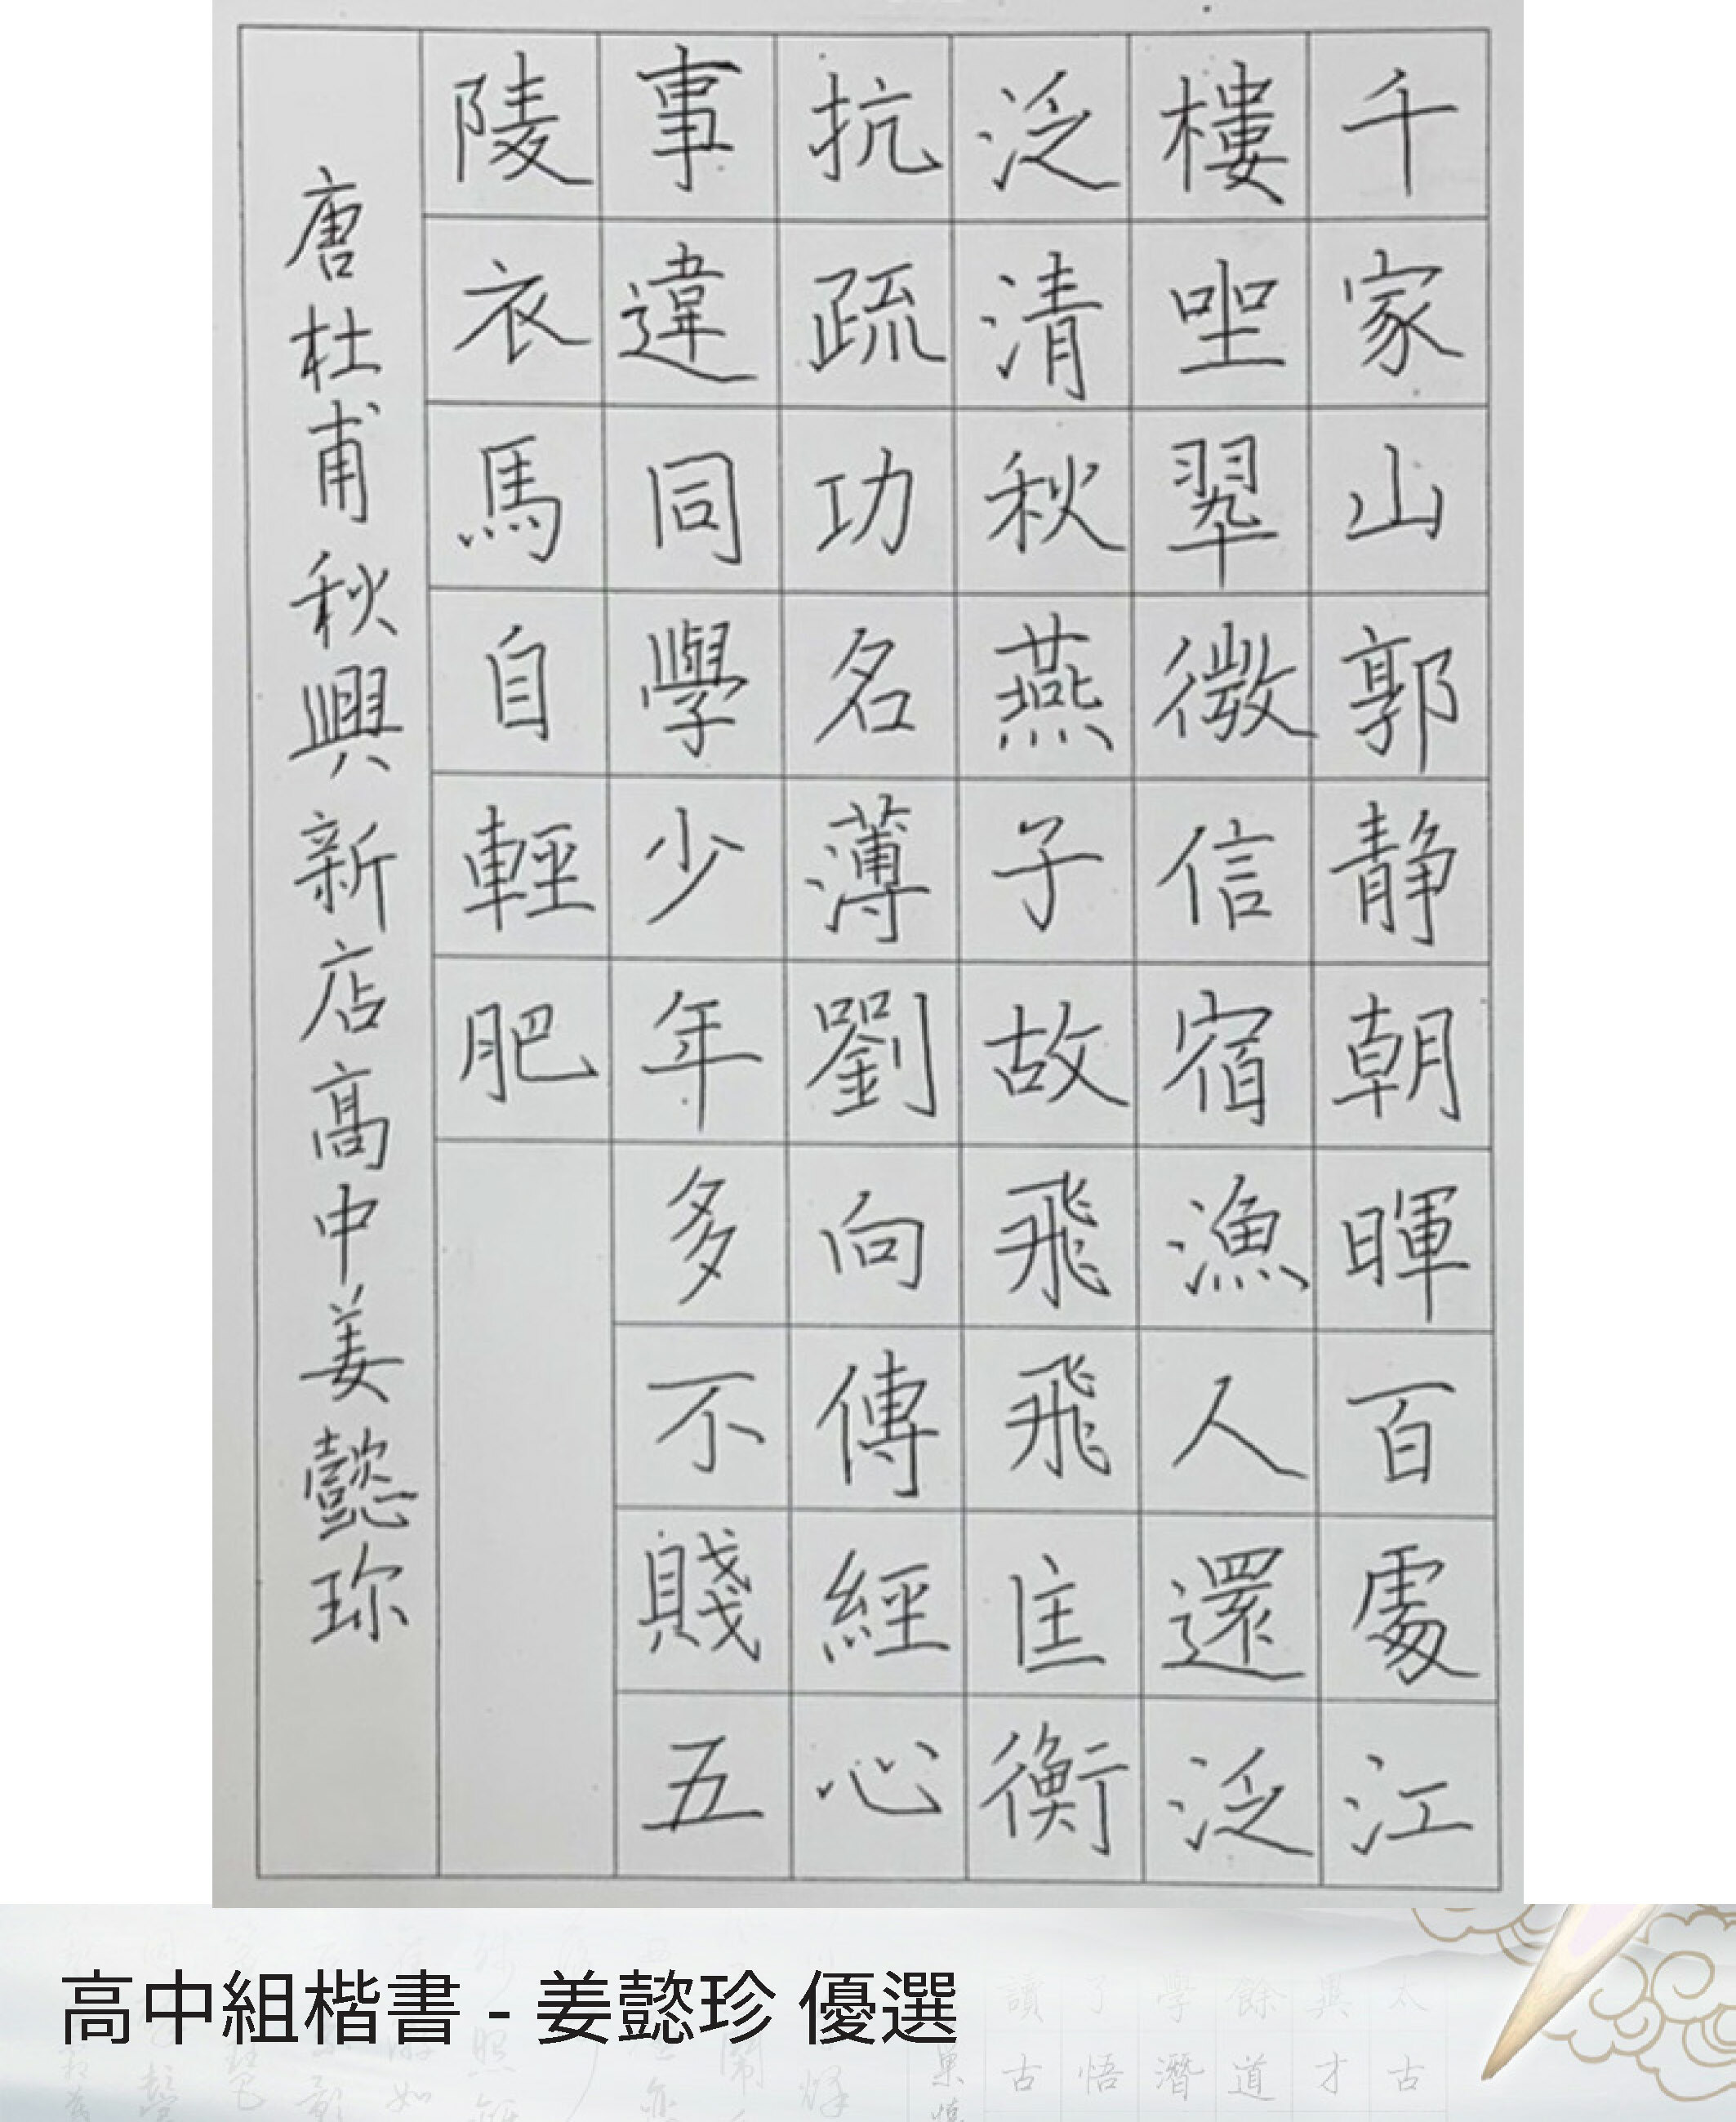 千家山郭靜朝暉百處江
樓坐翠微信宿漁人還泛
泛清秋燕子故飛飛匡衡
抗疏功名薄劉向傳經心
事違同學少年多不賤五
陵衣馬自輕肥
唐杜甫秋興新店高中姜懿珍
高中組楷書 - 姜懿珍 優選